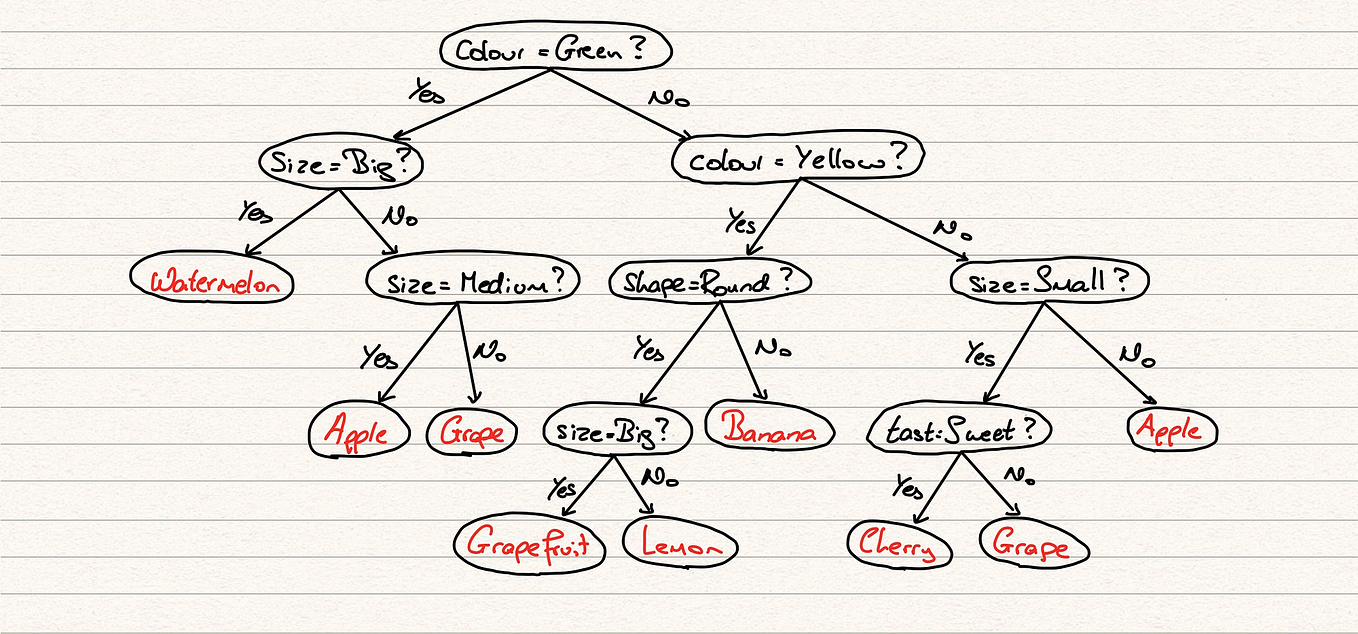 Colour = Green?
Yes
No
Size=Big?
colour = Yellow?
Yes
No
Yes
No
Watermelon
size=Medium?
shape=Round?
size=Small?
Yes
No
Yes
No
Yes
No
Apple
Grape
size=Big?
Banana
tast=Sweet?
Apple
Yes
No
Yes
No
Grapefruit
Lemon
Cherry
Grape